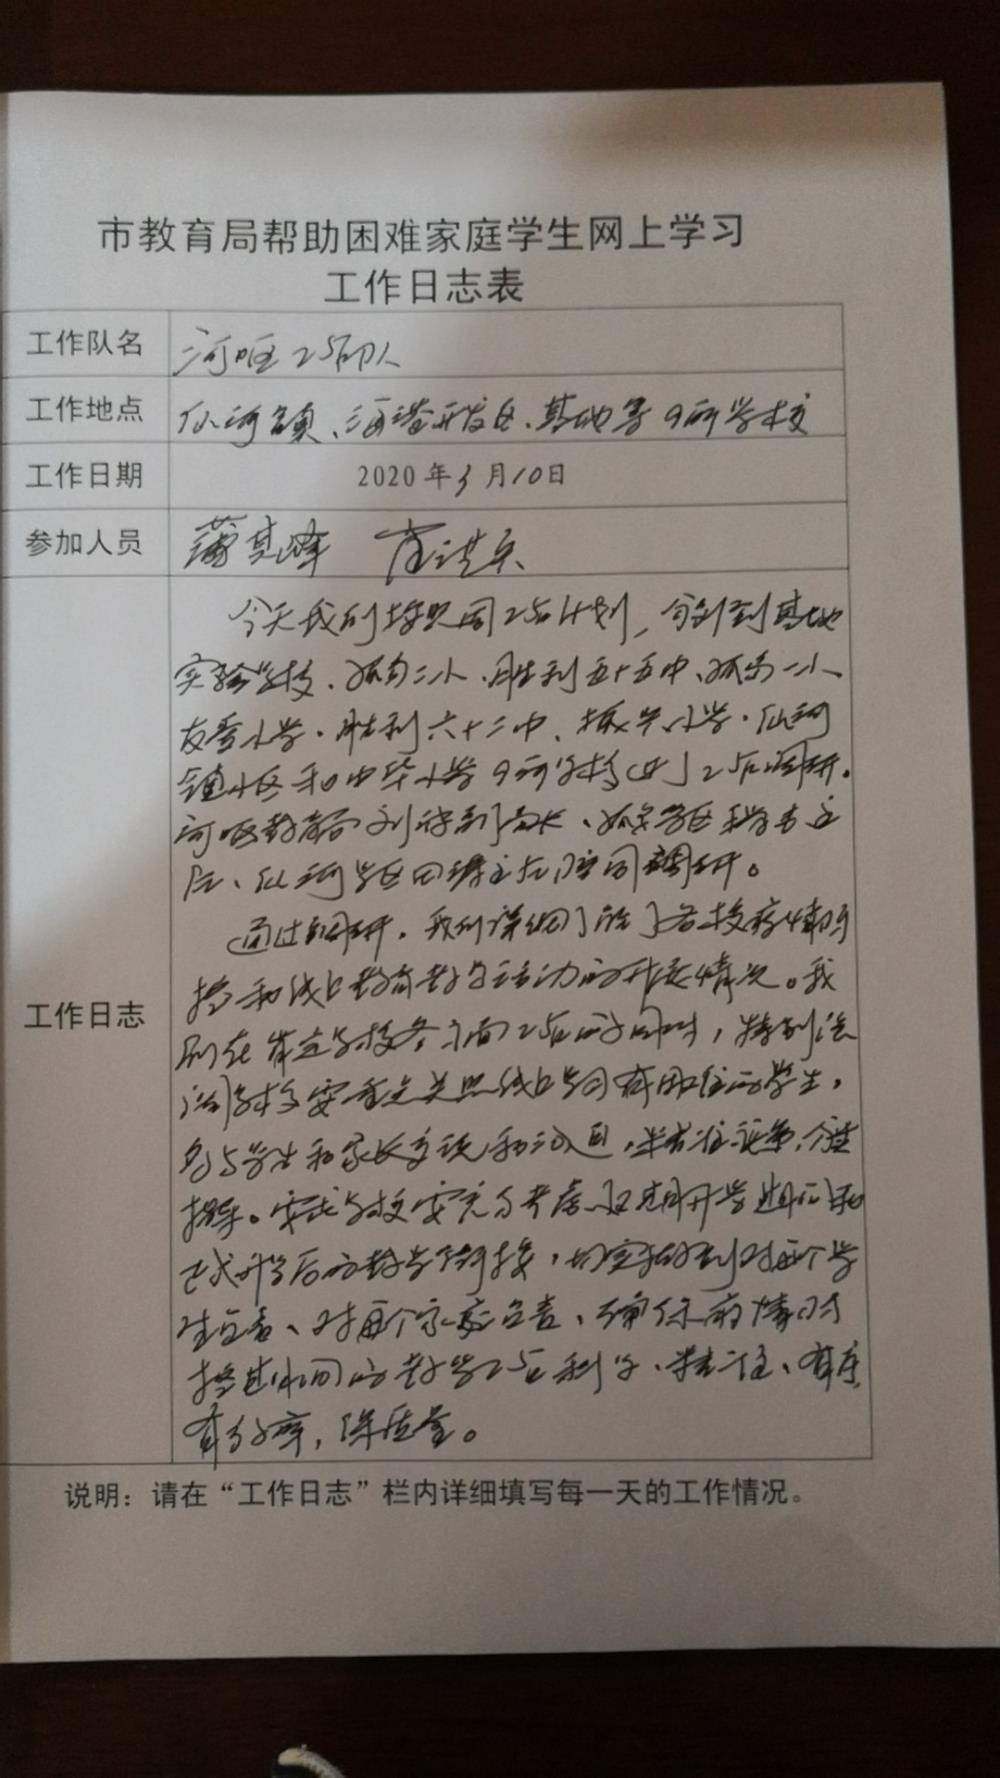 市教育局帮助困难家庭学生网上学习
工作日志表
工作队名 河口区工作队
工作地点 仙河镇、海港开发区、基地等9所学校
工作日期 2020年3月10日
参加人员
工作日志
今天我们按照周工作计划，分别到基地
实验学校、孤岛二小、胜利五十五中、孤岛一小、
友爱小学、胜利六十二中、振兴小学、仙河
镇小区和中华小学9所学校进行工作调研。
河口区教育局刘副局长、孤岛学区主
任、仙河学区田主任陪同调研。
通过调研，我们详细了解了各校疫情防
控和线上教育教学活动的开展情况。我
们在肯定学校各方面工作的同时，特别强
调学校要重点关照线上学习有困难的学生，
多与学生和家长交流和沟通，精准施策，个性
指导。要求学校要充分考虑延期开学期间和
正式开学后的教学衔接，切实做到对每个学
生负责、对每个家庭负责、确保疫情防
控期间的教学工作科学、精准、有序、
有效率，保质量。
说明：请在“工作日志”栏内详细填写每一天的工作情况。